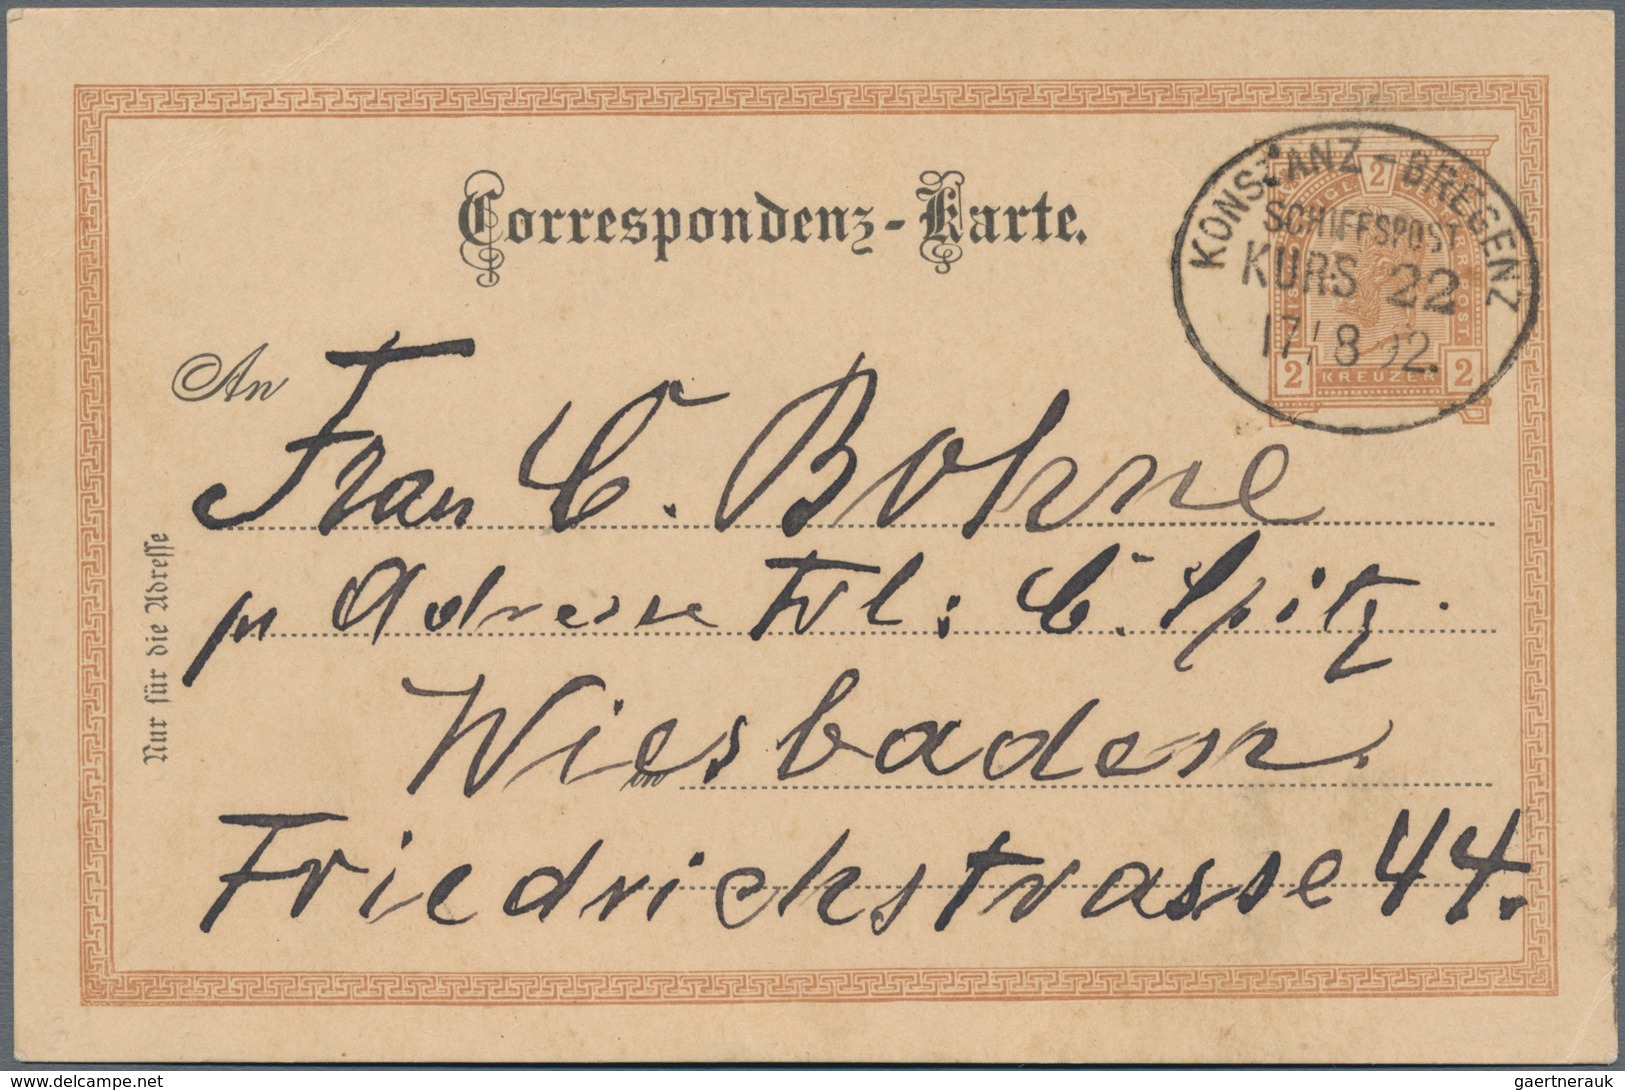 Correspondenz-Karte.
KONSTANZ - BREGENZ
SCHIFFSPOST
KURS 22
17/8 92.
2
2 KREUZER 2
An Frau C. Bohne
pr Adresse Frl: C. Spitz.
Wiesbaden.
in
Friedrichstrasse 44.
Nur für die Adresse
© www.delcampe.net
gaertnerauk